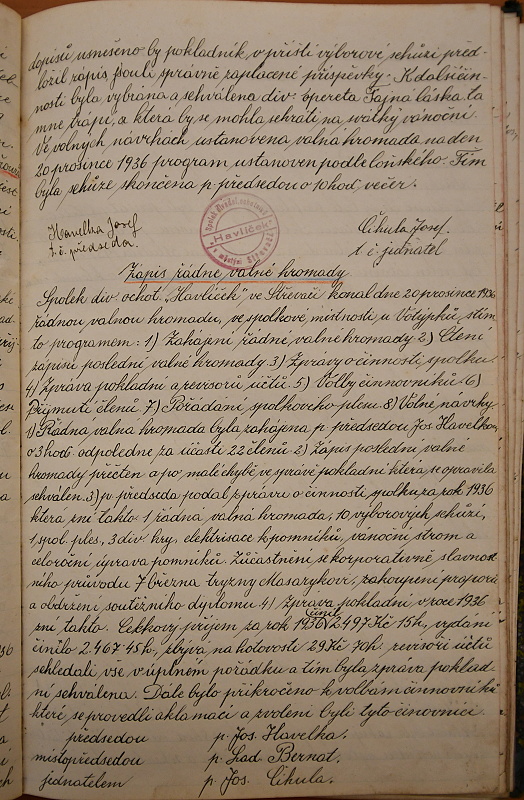 dopisů usnešeno by pokladník, v příští výborové schůzi před-
ložil zápis jsouli správně zaplacené příspěvky. K další čin-
nosti byla vybrána a schválena div. opereta Tajná láska ta
mne trápí, a která by se mohla sehráti na svátky vánoční.
Ve volných návrhách ustanovena valná hromada na den
20 prosince 1936 program ustanoven podle loňského. Tím
byla schůze skončena p. předsedou o 10 hod. večer.
Havelka Josef
t. č. předseda.
Havlíček
Cihula Josef.
t. č. jednatel
Zápis řádné valné hromady.
Spolek div. ochot. "Havlíček" ve Střevači konal dne 20 prosince 1936
řádnou valnou hromadu, ve spolkové místnosti u Votýpků, s tím-
to programem: 1) Zahájní řádné valné hromady 2) Čtení
zápisu poslední valné hromady. 3) Zprávy o činnosti spolku
4) Zpráva pokladní a revisorů účtů. 5) Volby činovníků. 6)
Přijmutí členů. 7) Pořádání spolkového plesu. 8) Volné návrhy.
1) Řádná valná hromada byla zahájena p. předsedou Jos Havelkou,
o 3 hodi odpoledne za účasti 22 členů. 2) Zápis poslední valné
hromady přečten a po malé chybě ve správě pokladní která se opravila
schválen. 3) p. předseda podal zprávu o činnosti spolku za rok 1936
která zní takto. 1 řádná valná hromada, 10 výborových schůzí,
1 spol. ples, 3 div. hry, elektrisace k pomníků, vánoční strom a
celoroční úprava pomníků. Zúčastnění se korporativně slavnost-
ního průvodu 7 března tryzny Masarykovi, zakoupení praporu
a obdržení soutěžního dyplomu 4) Zpráva pokladní v roce 1936
zní takto. Celkový příjem za rok 1936 činil 2.497 Kč 15 h, vydání
činilo 2.467.45 h, zbývá na hotovosti 29 Kč 70 h. revisoři účtů
shledali, vše v úplném pořádku a tím byla zpráva poklad-
ní schválena. Dále bylo přikročeno k volbám činovníků
které, se provedli aklamací a zvoleni byli tyto činovníci.
předsedou p. Jos. Havelka.
místopředsedou p. Lad. Bernat.
jednatelem p. Jos. Cihula.